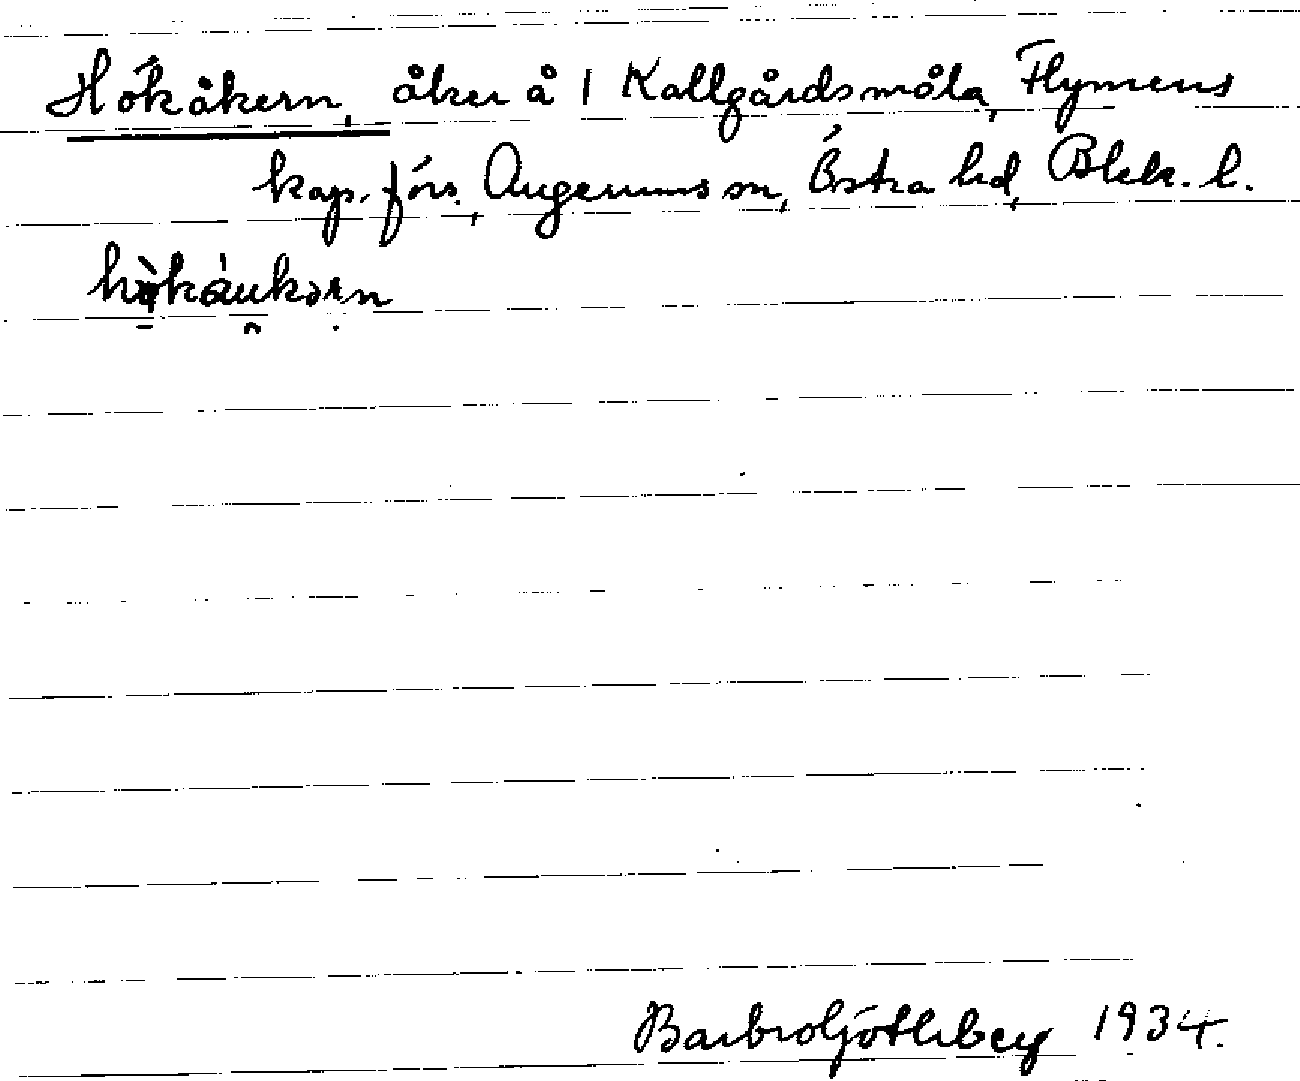 Hökåkern, åker å 1 Kallgårdsmåla, Flymens
kap. förs., Augerums sn, Östra hd, Blek. l.
Barbro Götlberg 1934.